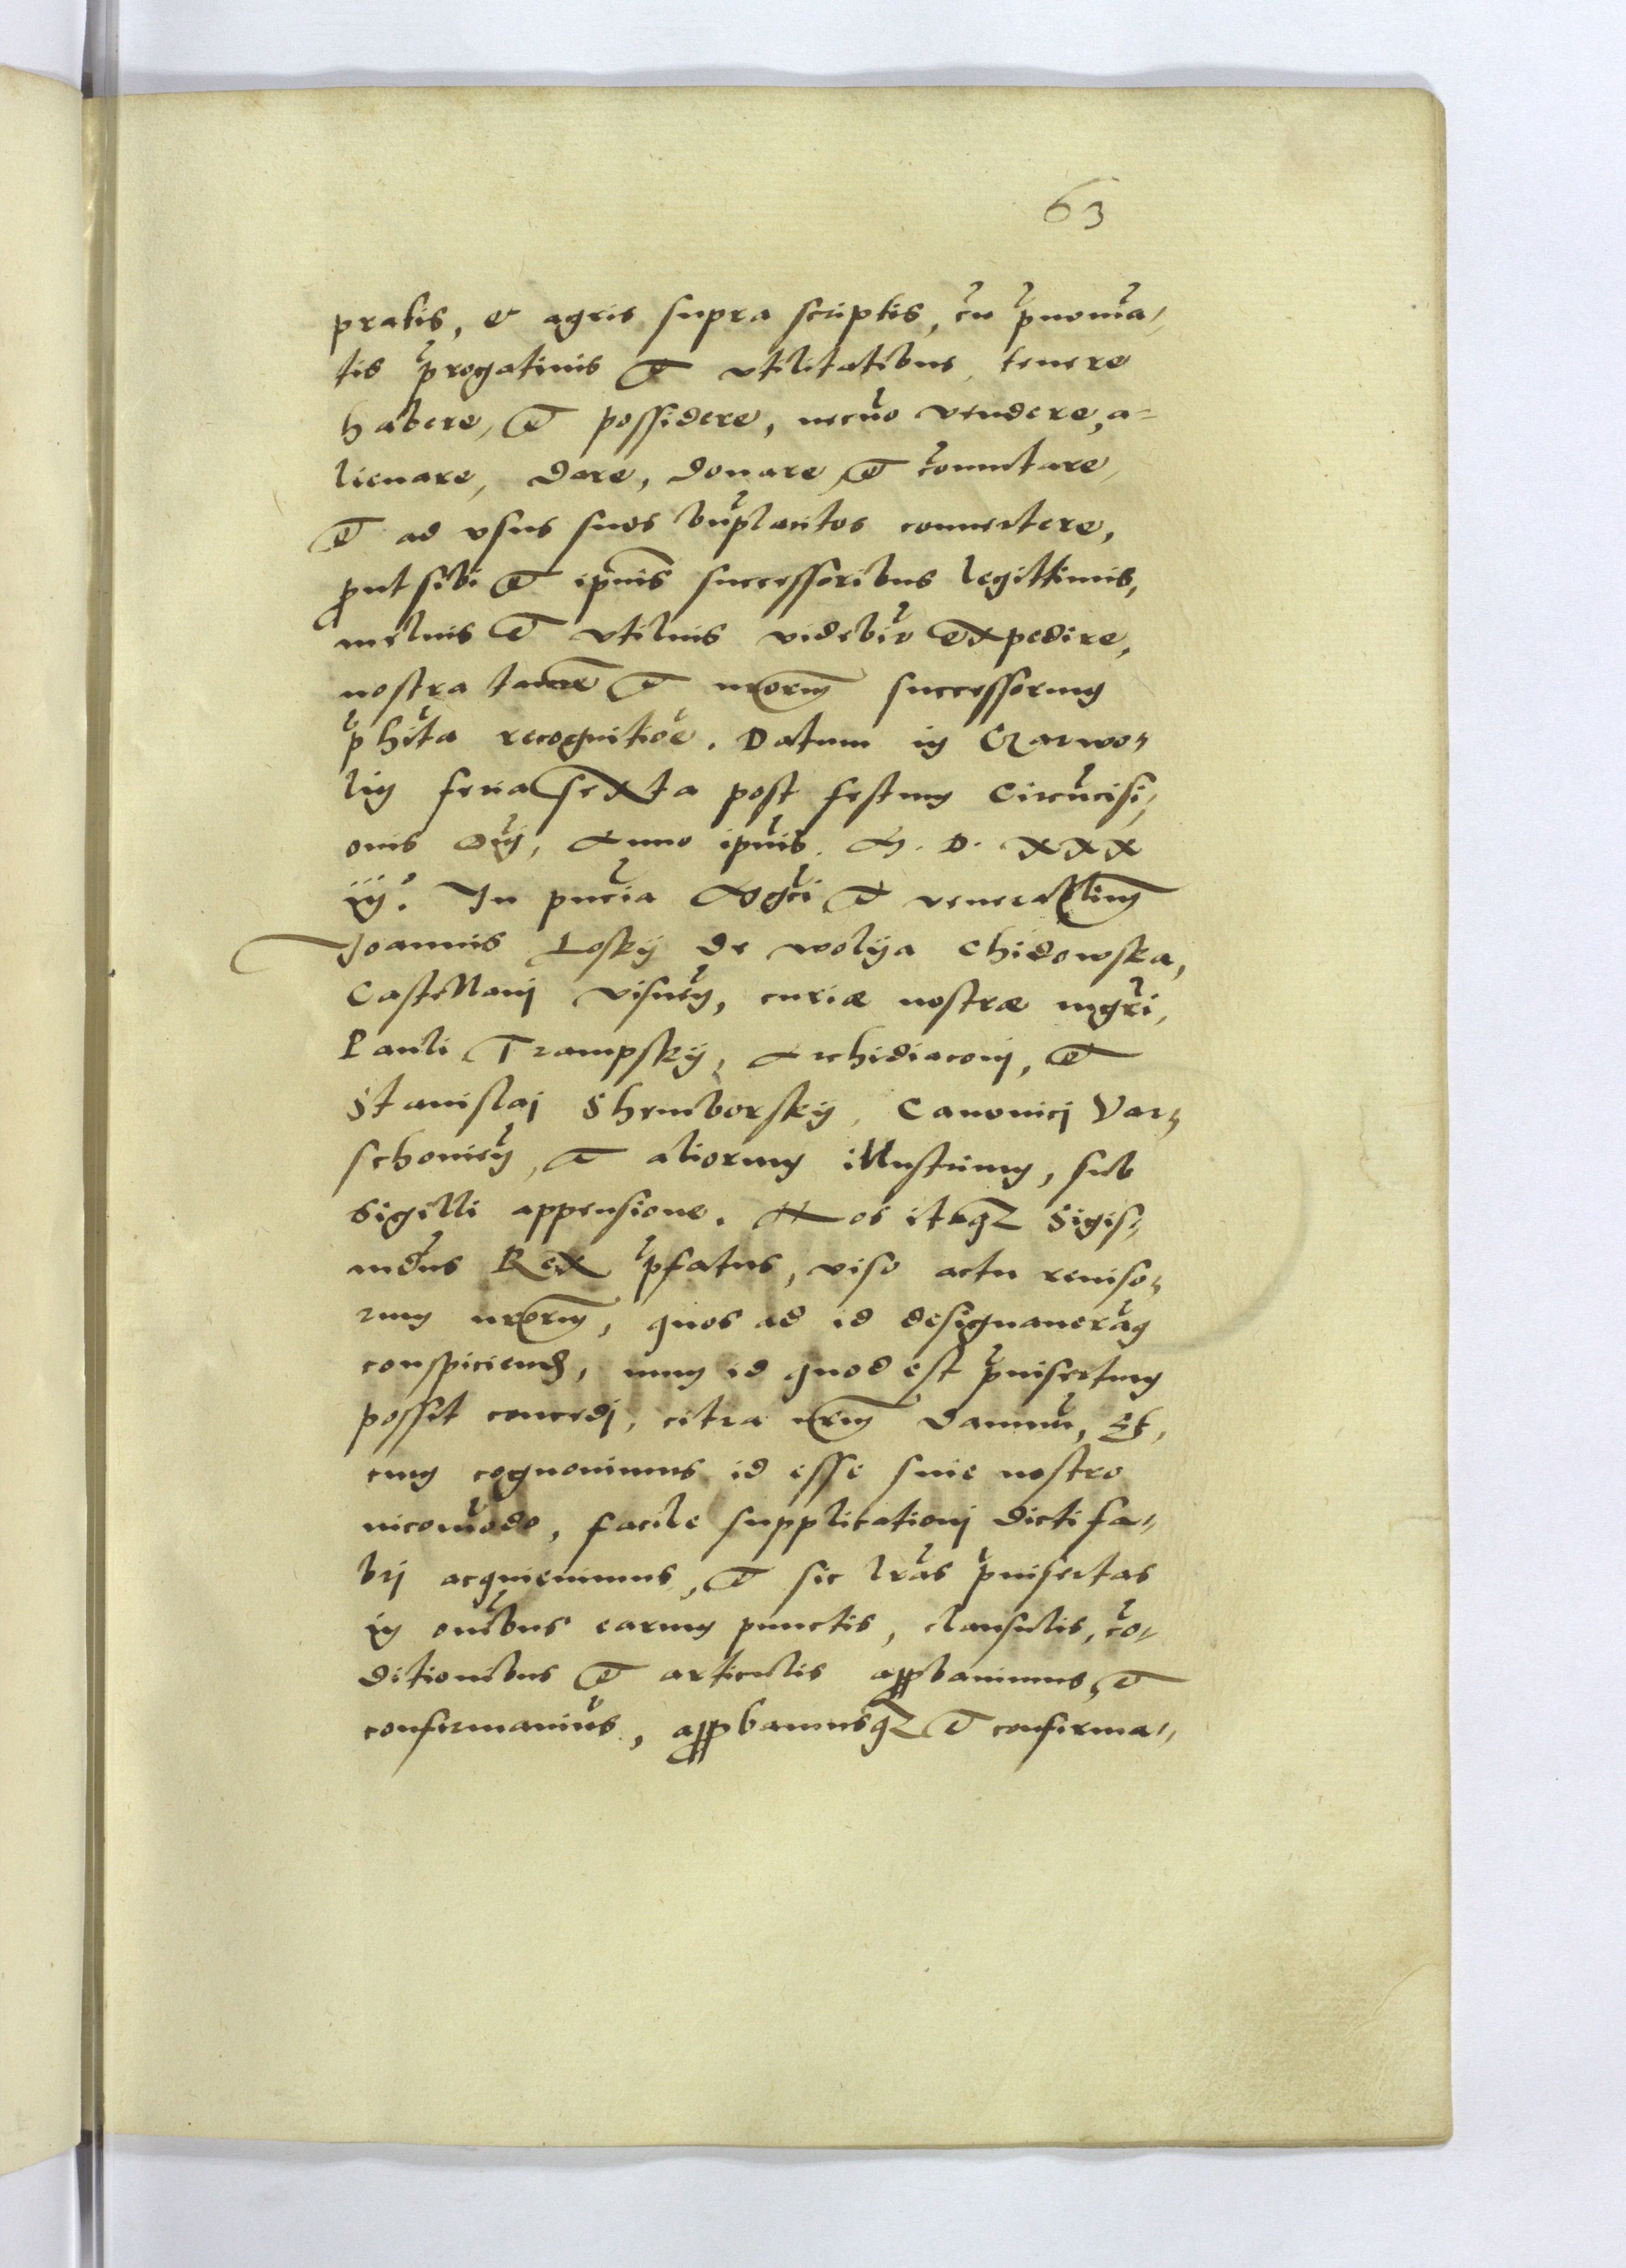 63
pratis, & agris supra scriptis, cũ p̃nomĩa-
tis p̃rogatiuis et vtilitatibus, tenere
habere, et possidere, necnõ vendere, a-
lienare, dare, donare, et cõmutare,
et ad vsus suos bñplacitos conuertere,
prout sibi et ipsius̃ successoribus legittimis,
melius et vtilius videbit̃ expedire,
nostra tamen et nrorum̃ successorum
p̃hĩta recognitiõe. Datum in Czarwo-
lin feria sexta post festum Circũcisi-
onis Dñj, Anno ipsĩus. M. D. XXX
iij? In p̃ncia Mgci et venerabilium̃
Joannis Losky de wolya Chidowska,
Castellanj visneñ, curiæ nostræ mgr̃i,
Pauli Trampsky, Archidiaconj, et
Stanislaj Shemborsky, Canonicj Var-
schonieñ, et aliorum illustrium, sub
Sigilli appensione. Nos itaq; Sigis-
mũdus Rex p̃fatus, viso actu reuiso-
rum nrorum̃, quos ad id designauerãm
conspiciend, num id quod est p̃insertum
possit concedj, citra nrum̃ damnũ, Et,
cum cognouimus id esse sine nostro
incomõdo, facile supplicationj dicti fa-
brj acquieuimus, et sic lrãs p̃insertas
in omĩbus earum punctis, clausulis, cõ-
ditionibus et articulis approbauimus, et
confirmauimũs, approbamusq; et confirma-